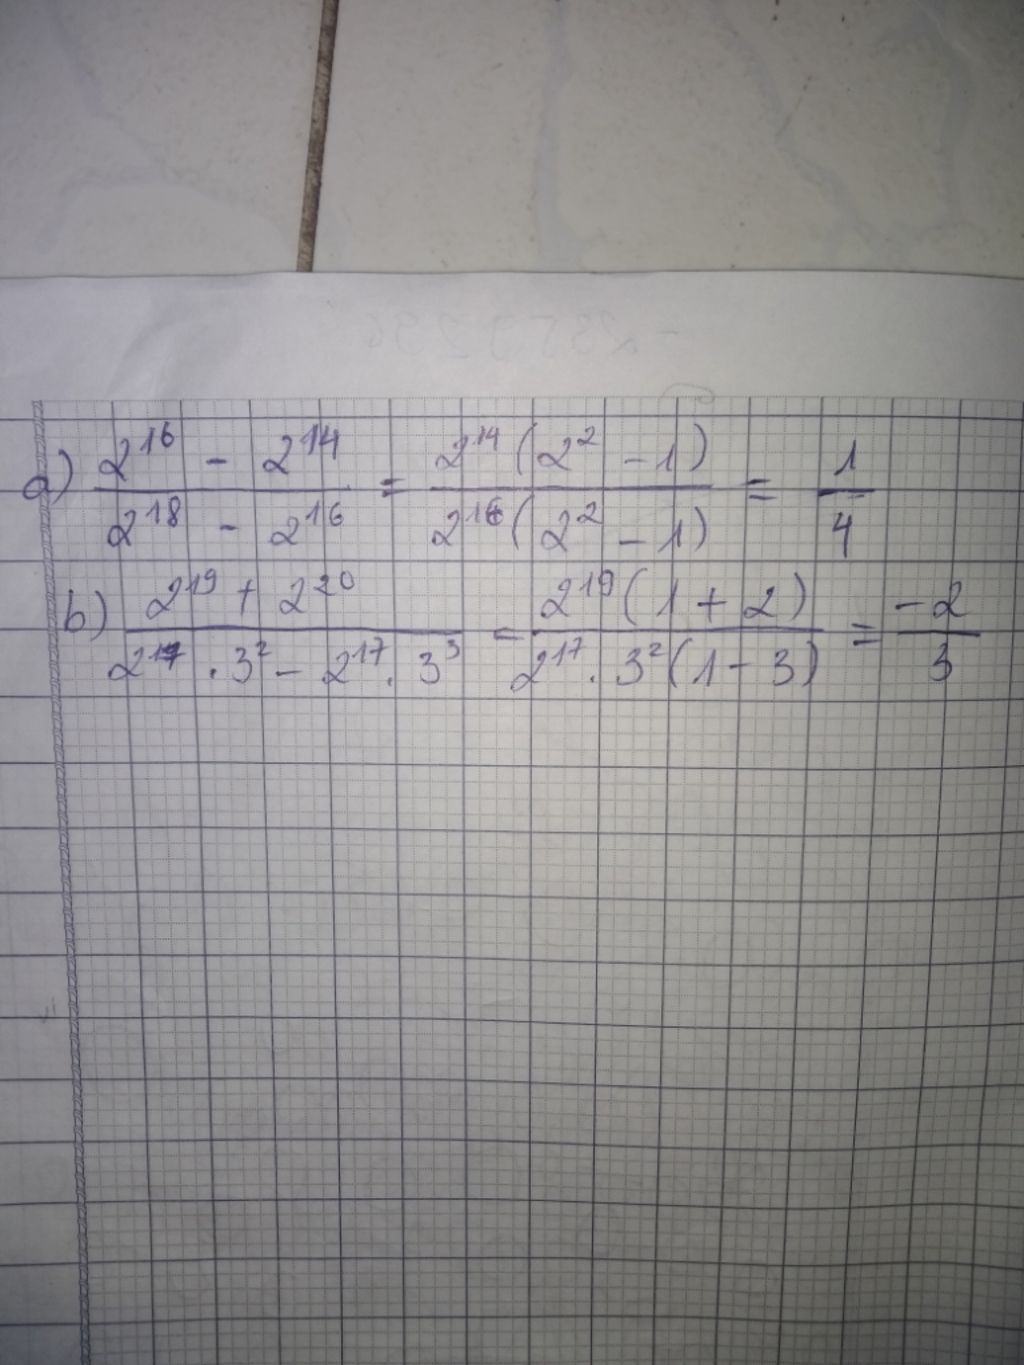 a) (2^16 - 2^14)/(2^18 - 2^16) = (2^14(2^2 - 1))/(2^16(2^2 - 1)) = 1/4
b) (2^19 + 2^20)/(2^17 . 3^2 - 2^17 . 3^3) = (2^19(1 + 2))/(2^17 . 3^2(1 - 3)) = -2/3